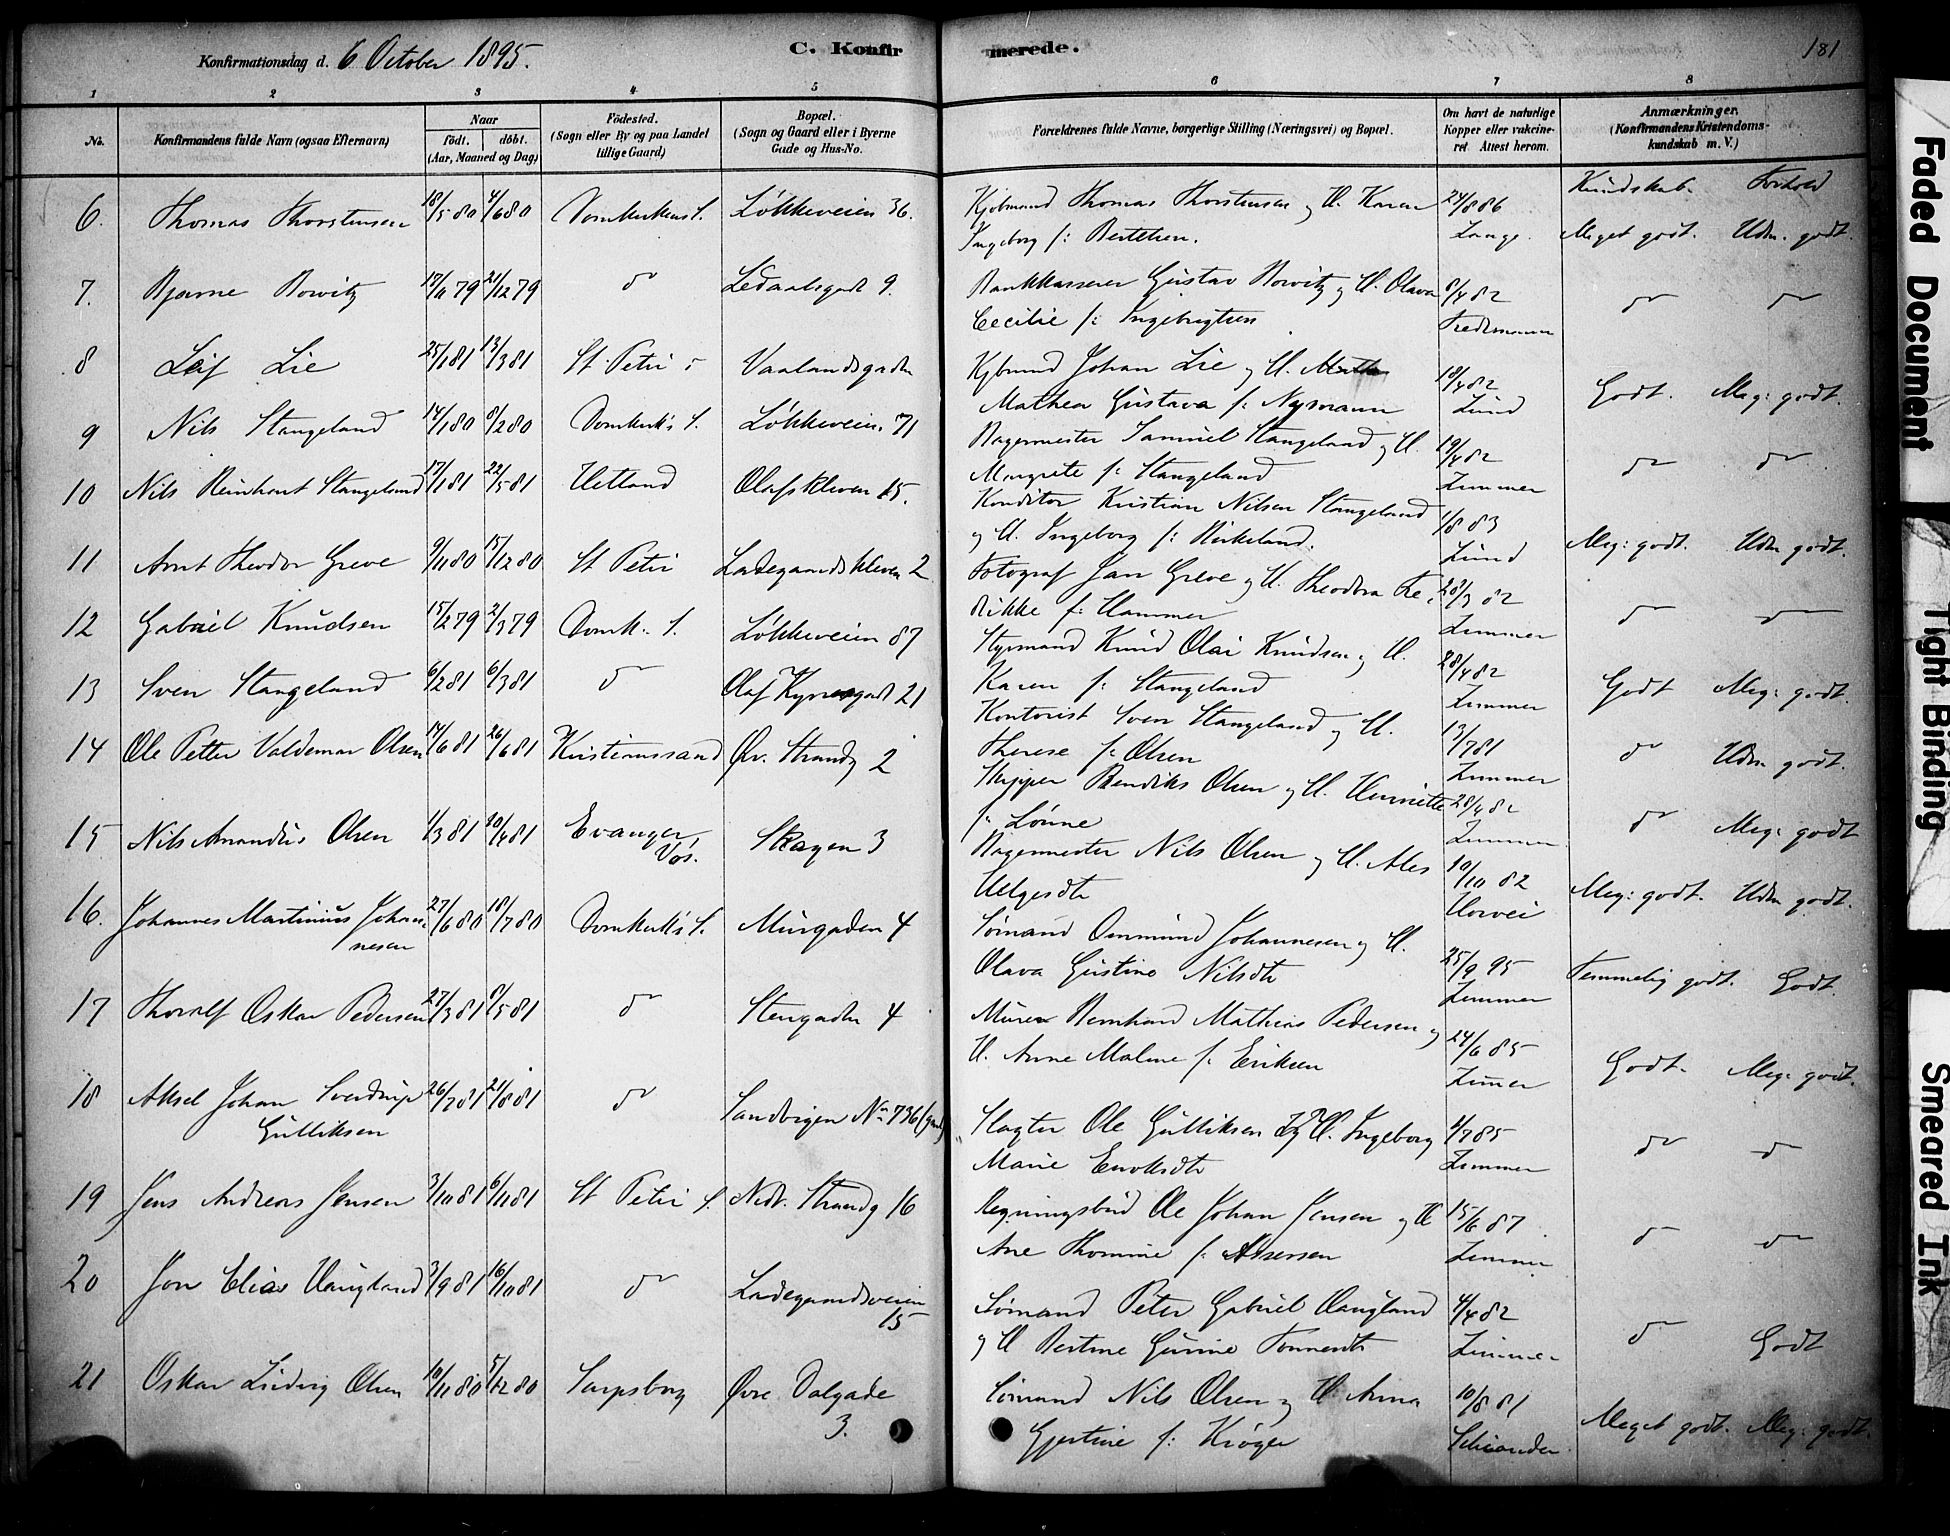 Konfirmationsdag d. 6 October 1895.
C. Konfirmerede.
181
1 2 3 4 5 6 7 8
No.
Konfirmandens fulde Navn (ogsaa Efternavn)
Naar
födt. döbt.
(Aar, Maaned og Dag)
Födested.
(Sogn eller By og paa Landet
tillige Gaard)
Bopæl.
(Sogn og Gaard eller i Byerne
Gade og Hus-No.
Forældrenes fulde Navne, borgerlige Stilling (Næringsvei) og Bopæl.
Om havt de naturlige
Kopper eller vakcine-
ret Attest herom.
Anmærkninger.
(Konfirmandens Kristendoms-
kundskab m. V.)
Kundskab. Forhold
6. Thomas Thorstensen 18/5 80 4/6 80 Domkirkens S. Løkkeveien 36. Kjøbmand Thomas Thorstensen og H. Karen 24/8 86
Ingeborg f: Bertelsen. Lange. Meget godt. Udm. godt.
7. Bjarne Rowitz 17/11 79 21/12 79 do Ledaalsgade 9. Bankkasserer Gustav Rowitz og H. Olava 8/4 82 do do
Cecilie f: Ingebrigtsen
8 Leif Lie 25/1 81 13/3 81 St. Petri s Vaalandsgaden Kjbmnd Johan Lie og H.
Mathea Gustava f: Nymann 18/4 82 Lund Godt. Meg: godt.
9 Nils Stangeland 14/1 80 8/2 80 Domkirk's S. Løkkeveien 71 Bagermester Samuel Stangeland og H.
Margrete f: Stangeland 19/4 82 Zimmer do do
10 Nils Reinhart Stangeland 17/1 81 22/5 81 Hetland Olafskleven 15. Konditor Kristian Nilsen Stangeland
og H. Ingeborg f: Birkeland. 1/8 83 Lund Meg: godt. Udm godt.
11 Arnt Theodor Greve 9/11 80 15/12 80 St Petri Ladegaardskleven 2 Fotograf Jan Greve og H. Theodora Fre-
drikke f: Hammer 28/3 82 Zimmer do do
12 Gabriel Knudsen 15/2 79 2/3 79 Domk. S. Løkkeveien 87 Styrmand Knud Olai Knudsen og H.
Karen f: Stangeland 28/4 82 Zimmer Godt Meg: godt
13 Sven Stangeland 6/2 81 6/3 81 do Olaf Kyrresgade 21 Kontorist Sven Stangeland og H.
Therese f: Olsen 13/7 81 Zimmer do Udm godt.
14 Ole Petter Valdemar Olsen 14/6 81 26/6 81 Kristianssand Øv. Strandg 2 Skipper Bendiks Olsen og H. Henriette
f: Lønne 28/4 82 Zimmer do Meg: godt
15 Nils Amandus Olsen 1/3 81 Evanger
Vos. Skagen 3 Bagermester Nils Olsen og H. Ales
Helgesdtr 10/10 82 Meg: godt. Udm godt.
16. Johannes Martinius Johan-
nesen 27/6 80 18/7 80 Domkirk's S. Murgaden 4 Sømand Ommund Johannesen og H.
Olava Gustine Nilsdtr 25/9 95 Zimmer Temmelig godt. Godt.
17 Thoralf Oskar Pedersen 27/3 81 8/5 81 do Stengaden 4 Murer Bernhard Mathias Pedersen og
H. Anne Malene f. Eriksen 24/6 85 Zimer Godt. Meg. godt.
18 Aksel Johan Sverdrup
Gulliksen 26/7 81 21/8 81 do Sandvigen No 736 Slagter Ole Gulliksen og H. Ingeborg
Marie Enoksdtr 4/7 85 Zimmer do do
19 Jens Andreas Jensen 3/10 81 6/11 81 St Petri S. Nedr. Strandg 16 Regningsbud Ole Johan Jensen og H
Ane Thomine f: Assersen 15/6 87 Zimmer do do
20 Jon Elias Haugland 3/9 81 16/10 81 do Ladegaardsveien
15 Sømand Peter Gabriel Haugland
og H Bertine Gurine Tønnesdtr 4/4 82 Zimmer do Godt
21 Oskar Ludvig Olsen 10/11 80 5/12 80 Sarpsborg Øvre Dalgade
3. Sømand Nils Olsen og H. Anna
Gjertine f: Krøger 10/8 81 Meget godt. Meg. godt.
Faded Document
Tight Binding
Smeared Ink